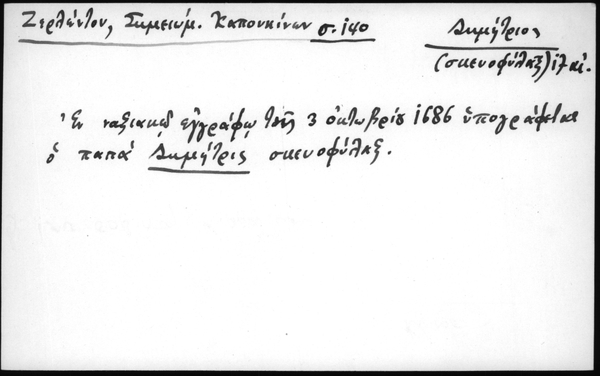 Ζερλέντου, Σημειώμ. Καπουκίνων σ. 140
Δημήτριος
(σκευοφύλαξ) 17 αἰ.
Ἐν ναξιακῷ ἐγγράφῳ τῆς 3 ὀκτωβρίου 1686 ὑπογράφεται
ὁ παπᾶ Δημήτρις σκευοφύλαξ.